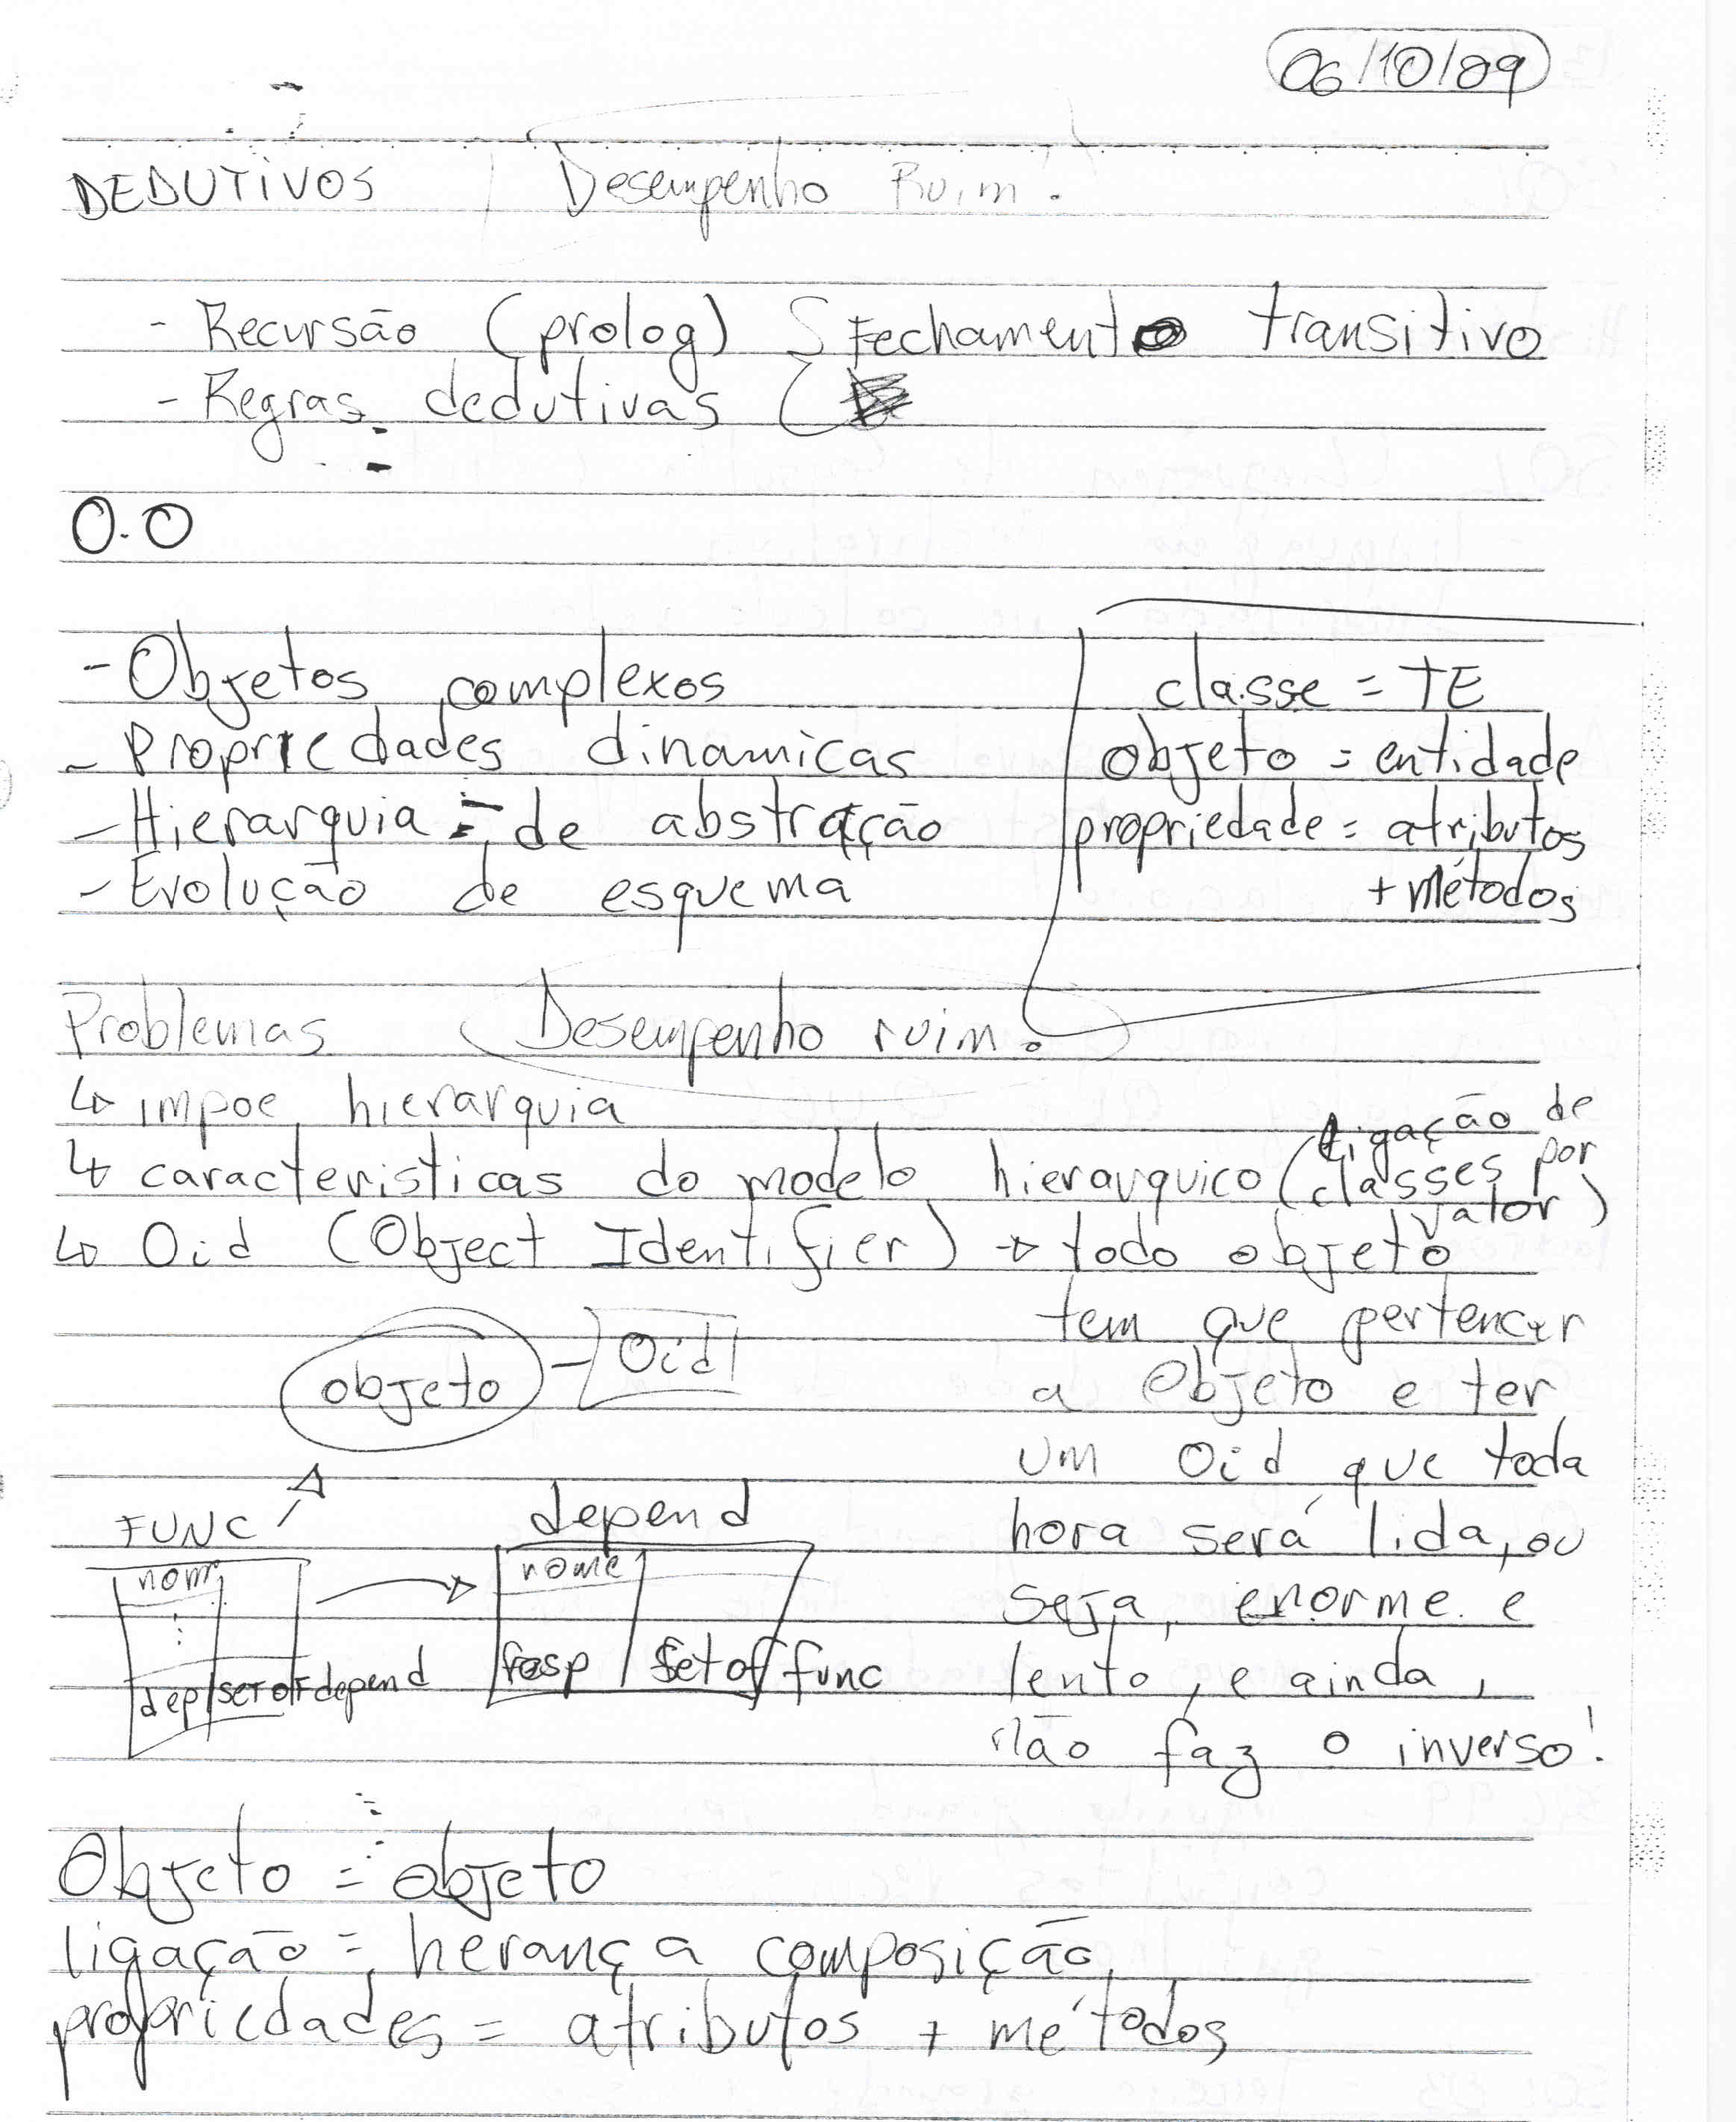 06/10/09
DEDUTIVOS Desempenho Ruim.
- Recursão (prolog) Fechamento transitivo
- Regras dedutivas
O.O
- Objetos complexos
- Propriedades dinamicas
- Hierarquia de abstração
- Evolução de esquema
classe = TE
objeto = entidade
propriedade = atributos
+ métodos
Problemas Desempenho ruim.
↳ impoe hierarquia
↳ caracteristicas do modelo hierarquico (Ligação de
classes por
valor)
↳ Oid (Object Identifier) → todo objeto
tem que pertencer
a Objeto e ter
um Oid que toda
hora será lida, ou
seja, enorme e
lento, e ainda,
não faz o inverso!
objeto - Oid
FUNC
nom
dep setof depend
depend
nome
resp set of func
Objeto = objeto
ligação = herança composição
propriedades = atributos + métodos